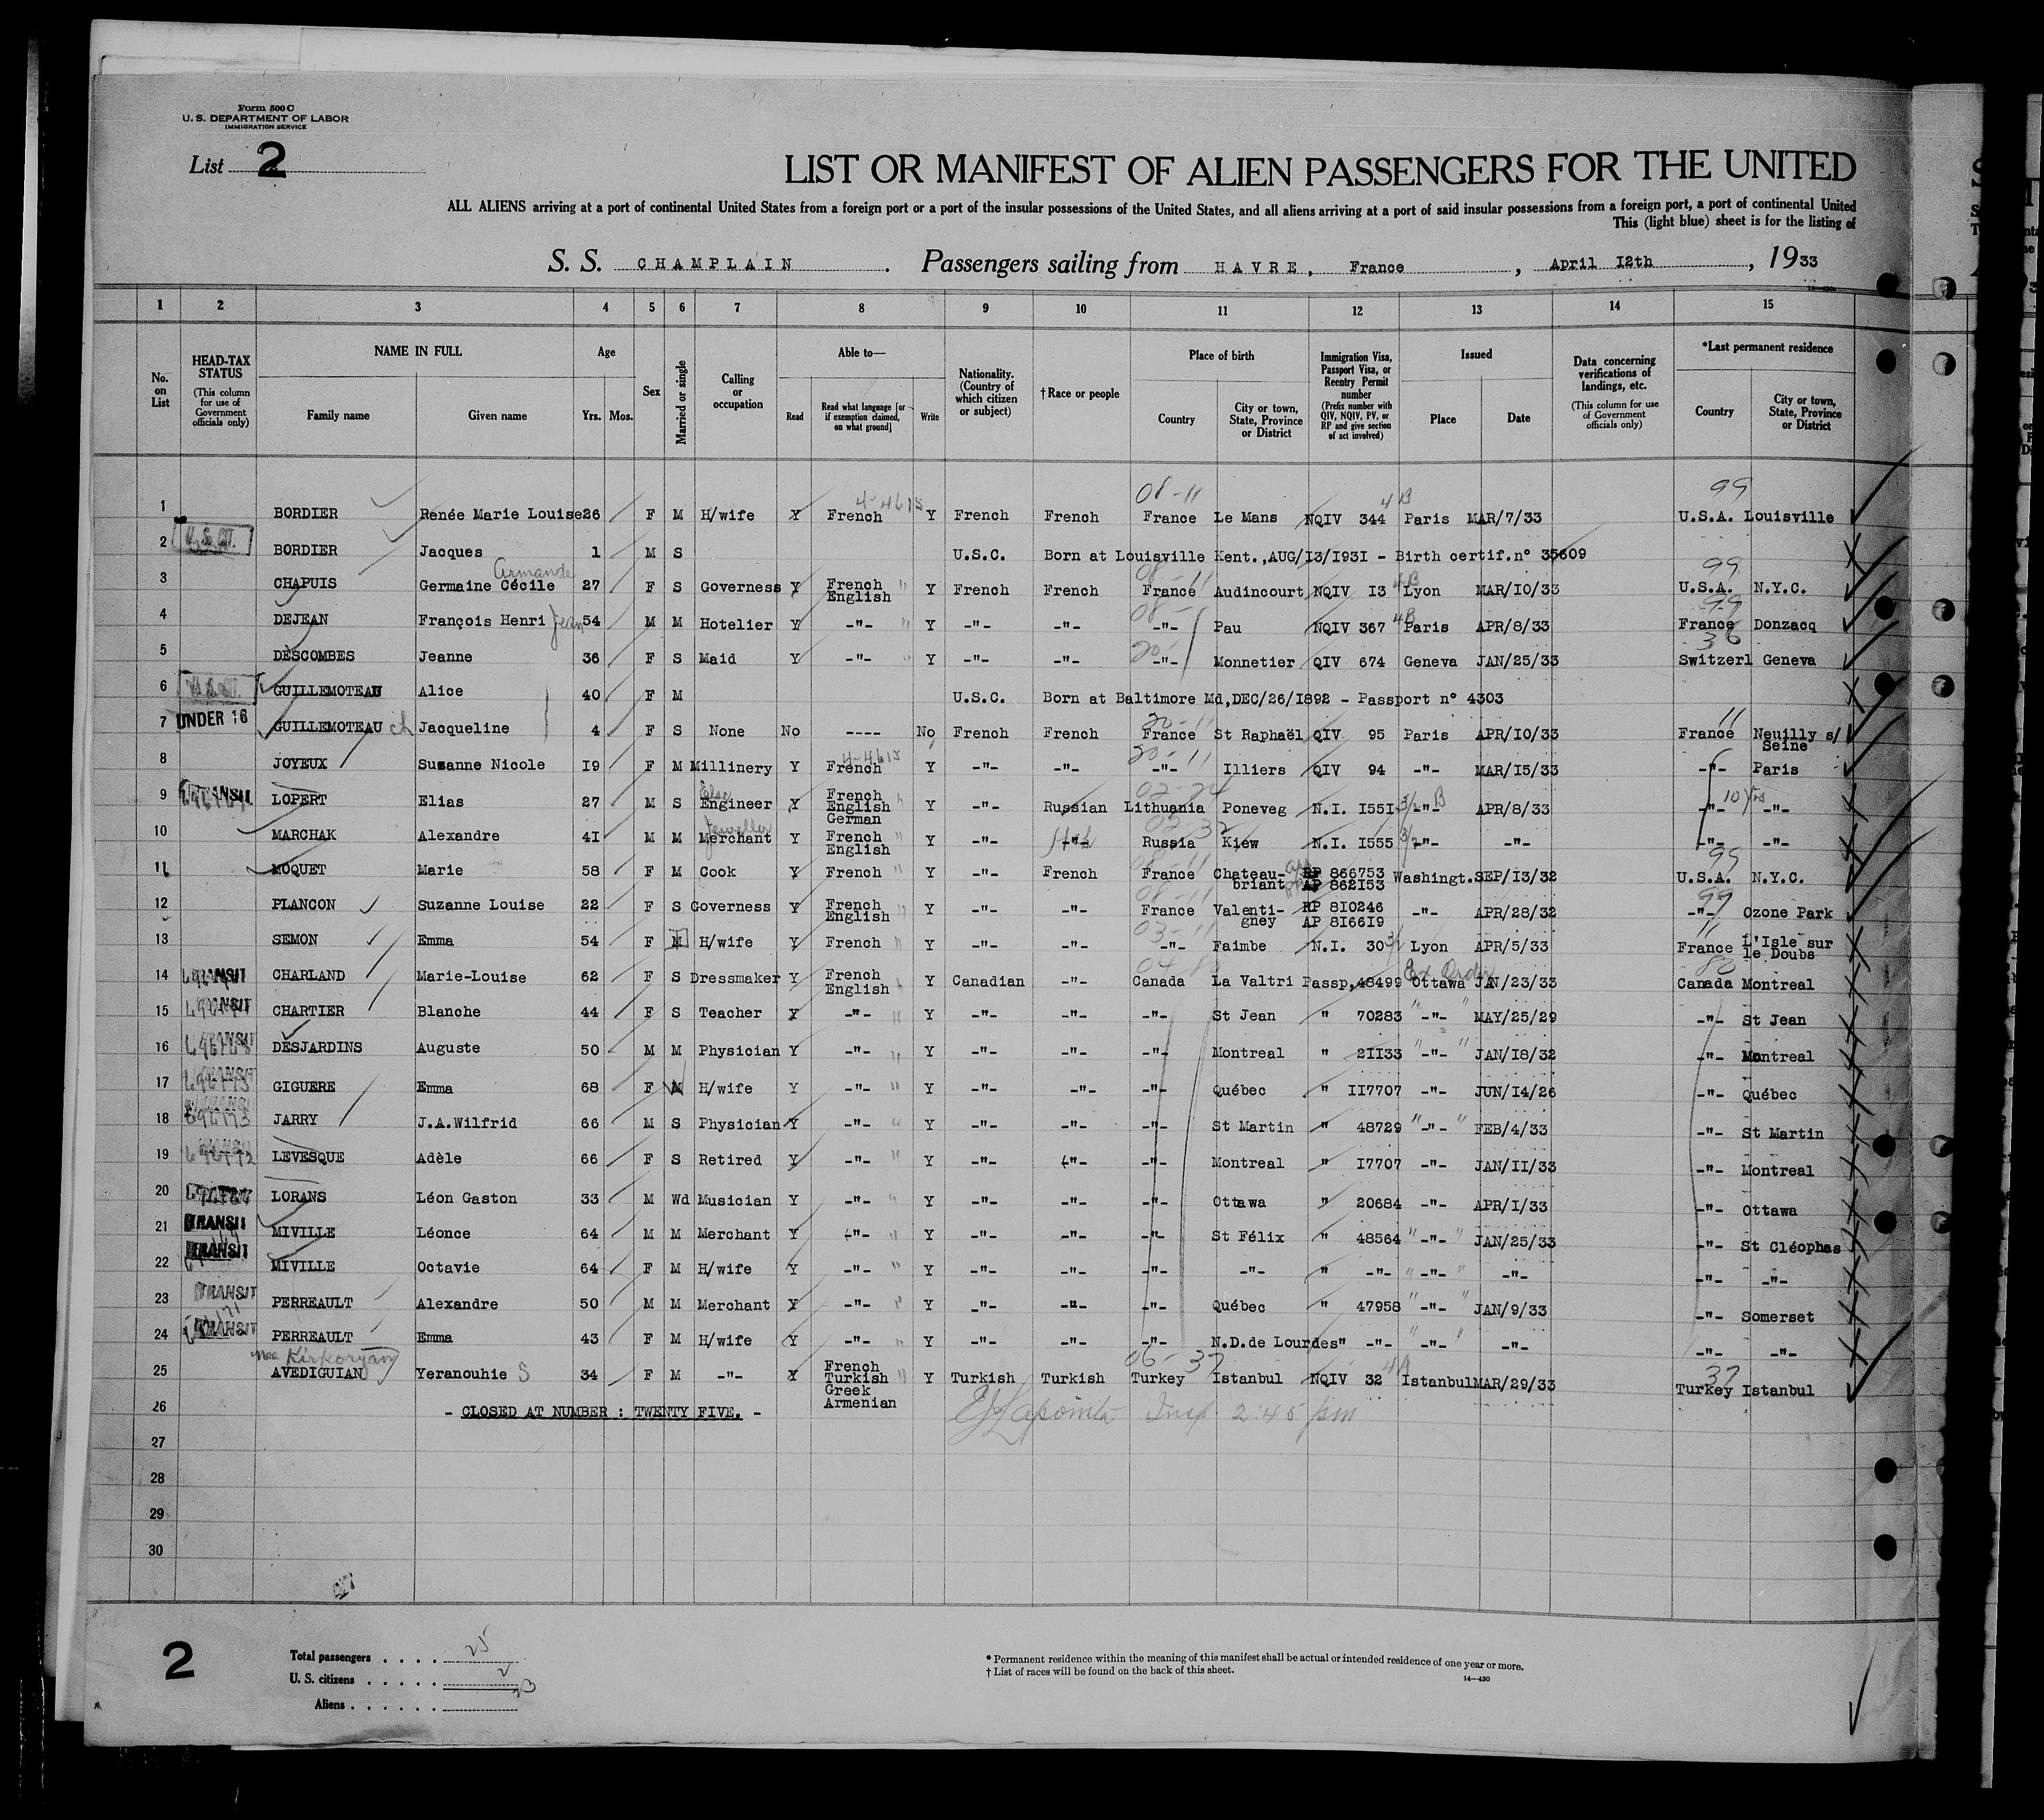 Form 500 C
U. S. DEPARTMENT OF LABOR
IMMIGRATION SERVICE
List 2
LIST OR MANIFEST OF ALIEN PASSENGERS FOR THE UNITED
ALL ALIENS arriving at a port of continental United States from a foreign port or a port of the insular possessions of the United States, and all aliens arriving at a port of said insular possessions from a foreign port, a port of continental United
This (light blue) sheet is for the listing of
S. S. CHAMPLAIN . Passengers sailing from HAVRE, France , April I2th , 1933
1 2 3 4 5 6 7 8 9 10 11 12 13 14 15
No. on List
HEAD-TAX STATUS (This column for use of Government officials only)
NAME IN FULL
Family name Given name
Age
Yrs. Mos.
Sex
Married or single
Calling or occupation
Able to—
Read Read what language [or if exemption claimed, on what ground] Write
Nationality. (Country of which citizen or subject)
†Race or people
Place of birth
Country City or town, State, Province or District
Immigration Visa, Passport Visa, or Reentry Permit number (Prefix number with QIV, NQIV, PV, or RP and give section of act involved)
Issued
Place Date
Data concerning verifications of landings, etc. (This column for use of Government officials only)
*Last permanent residence
Country City or town, State, Province or District
4-4615 08-11 4B 99
1 BORDIER Renée Marie Louise 26 F M H/wife Y French Y French French France Le Mans NQIV 344 Paris MAR/7/33 U.S.A. Louisville
2 U.S. CIT. BORDIER Jacques 1 M S U.S.C. Born at Louisville Kent.,AUG/I3/I93I - Birth certif.n° 35609
Armande 08-11 4B 99
3 CHAPUIS Germaine Cécile 27 F S Governess Y French English " Y French French France Audincourt NQIV I3 Lyon MAR/IO/33 U.S.A. N.Y.C.
08- 4B 99
4 DEJEAN François Henri Jean 54 M M Hotelier Y -"- " Y -"- -"- -"- Pau NQIV 367 Paris APR/8/33 France Donzacq
20- 36
5 DESCOMBES Jeanne 36 F S Maid Y -"- " Y -"- -"- -"- Monnetier QIV 674 Geneva JAN/25/33 Switzerl Geneva
6 GUILLEMOTEAU Alice 40 F M U.S.C. Born at Baltimore Md,DEC/26/I892 - Passport n° 4303
20-11 11
7 UNDER 16 GUILLEMOTEAU ch Jacqueline 4 F S None No ---- No French French France St Raphaël QIV 95 Paris APR/IO/33 France Neuilly s/ Seine
4-4615 20-11
8 JOYEUX Suzanne Nicole I9 F M Millinery Y French Y -"- -"- -"- Illiers QIV 94 -"- MAR/I5/33 -"- Paris
Elec 02-74
9 TRANSIT LOPERT Elias 27 M S Engineer Y French English German " Y -"- Russian Lithuania Poneveg N.I. I55I 3/ -"- B APR/8/33 -"- -"-
Jeweller 02-32
10 MARCHAK Alexandre 4I M M Merchant Y French English " Y -"- Heb Russia Kiew N.I. I555 3/2 -"- -"- -"- -"-
08-11 99
11 MOQUET Marie 58 F M Cook Y French " Y -"- French France Chateau-briant RP 866753 AP 862I53 Washingt. SEP/I3/32 U.S.A. N.Y.C.
08-11 99
12 PLANCON Suzanne Louise 22 F S Governess Y French English " Y -"- -"- France Valenti-gney RP 8I0246 AP 8I66I9 -"- APR/28/32 -"- Ozone Park
03-11 11
13 SEMON Emma 54 F M H/wife Y French " Y -"- -"- -"- Faimbe N.I. 30 3/1 Lyon APR/5/33 France L'Isle sur le Doubs
Ex. Order
14 TRANSIT CHARLAND Marie-Louise 62 F S Dressmaker Y French English " Y Canadian -"- Canada La Valtri Passp.48499 Ottawa JAN/23/33 Canada Montreal
15 TRANSIT CHARTIER Blanche 44 F S Teacher Y -"- " Y -"- -"- -"- St Jean " 70283 " -"- " MAY/25/29 -"- St Jean
16 TRANSIT DESJARDINS Auguste 50 M M Physician Y -"- " Y -"- -"- -"- Montreal " 2II33 " -"- " JAN/I8/32 -"- Montreal
17 TRANSIT GIGUERE Emma 68 F H/wife Y -"- " Y -"- -"- -"- Québec " II7707 -"- JUN/I4/26 -"- Québec
18 JARRY J.A.Wilfrid 66 M S Physician Y -"- " Y -"- -"- -"- St Martin " 48729 " -"- " FEB/4/33 -"- St Martin
19 TRANSIT LEVESQUE Adèle 66 F S Retired Y -"- " Y -"- -"- -"- Montreal " I7707 -"- JAN/II/33 -"- Montreal
20 LORANS Léon Gaston 33 M Wd Musician Y -"- " Y -"- -"- -"- Ottawa " 20684 -"- APR/I/33 -"- Ottawa
21 TRANSIT MIVILLE Léonce 64 M M Merchant Y -"- " Y -"- -"- -"- St Félix " 48564 " -"- " JAN/25/33 -"- St Cléophas
22 TRANSIT MIVILLE Octavie 64 F M H/wife Y -"- " Y -"- -"- -"- -"- " -"- " -"- " -"- -"- -"-
23 TRANSIT PERREAULT Alexandre 50 M M Merchant Y -"- " Y -"- -"- -"- Québec " 47958 " -"- " JAN/9/33 -"- Somerset
24 TRANSIT PERREAULT Emma 43 F M H/wife Y -"- " Y -"- -"- -"- N.D.de Lourdes " -"- " -"- " -"- -"- -"-
nee Kirkoryan 06-37 4A 37
25 AVEDIGUIAN Yeranouhie S 34 F M -"- Y French Turkish Greek Armenian " Y Turkish Turkish Turkey Istanbul NQIV 32 Istanbul MAR/29/33 Turkey Istanbul
26 - CLOSED AT NUMBER : TWENTY FIVE. - Insp. 2:45 pm
27
28
29
30
2
Total passengers . . . . 25
U. S. citizens . . . . . 2
Aliens . . . . . . 23
* Permanent residence within the meaning of this manifest shall be actual or intended residence of one year or more.
† List of races will be found on the back of this sheet.
14—430